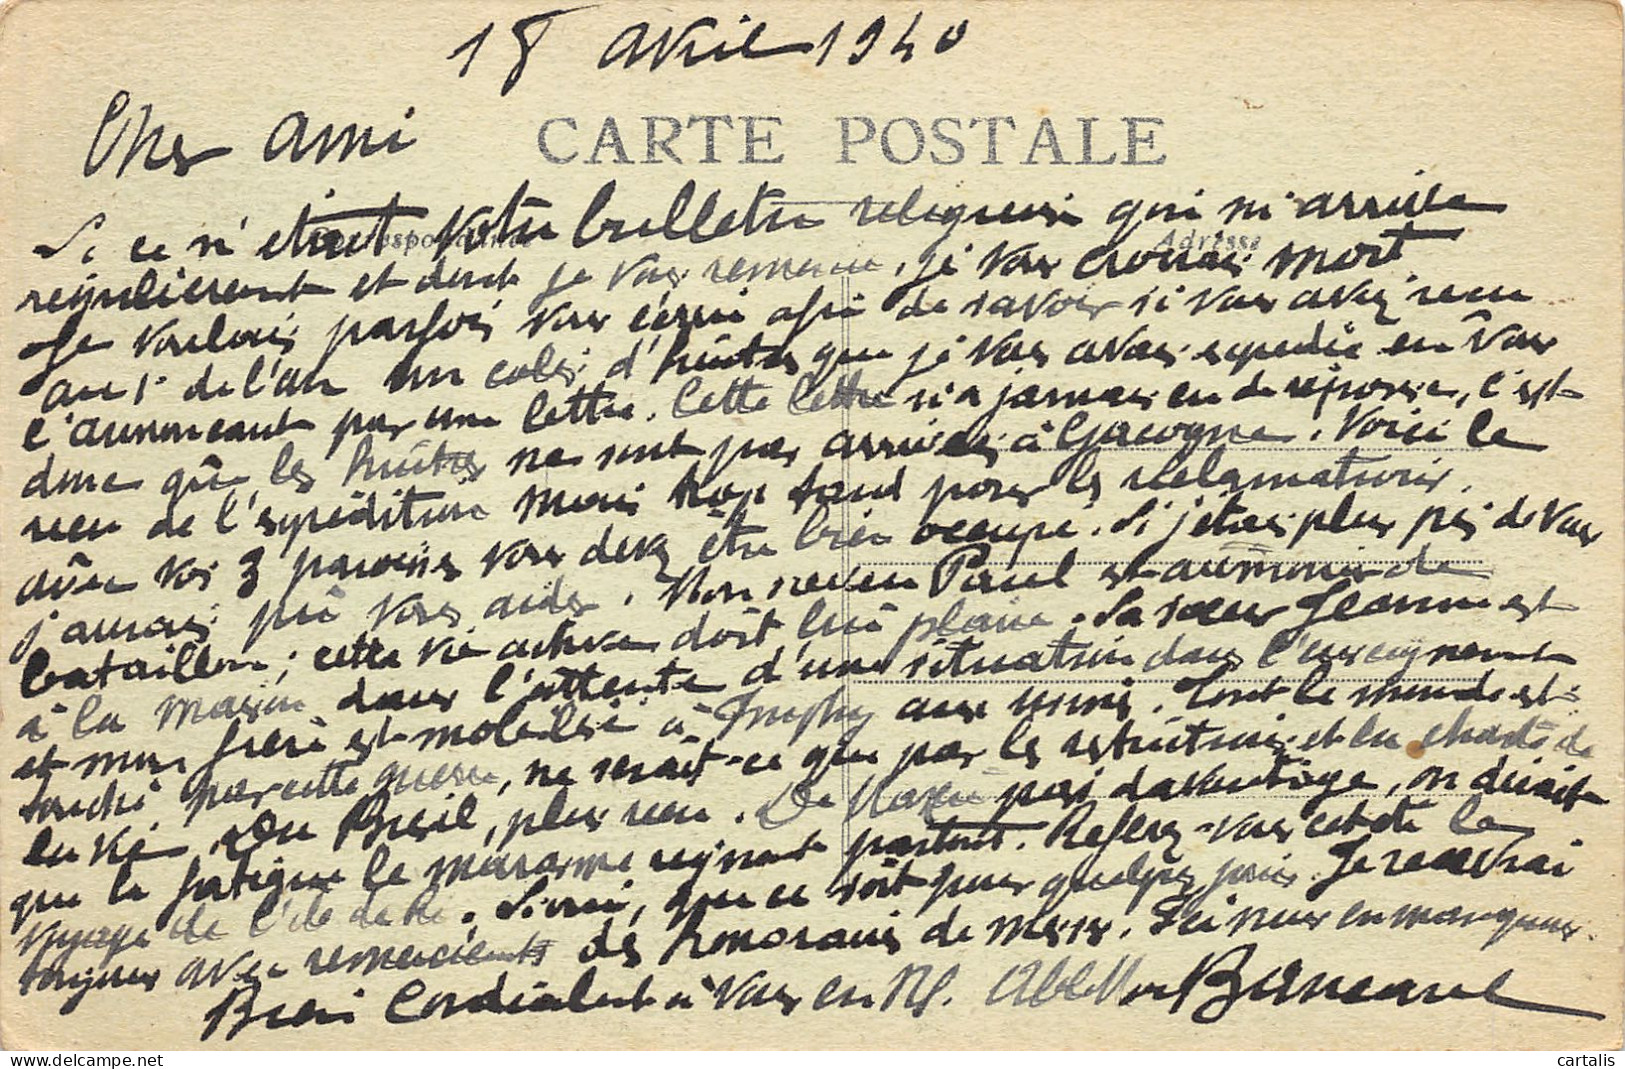 18 avril 1940
Cher ami
CARTE POSTALE
Correspondance
Adresse
Si ce n'était votre bulletin religieux qui m'arrive
régulièrement et dont je vous remercie, je vous croirais mort.
Je voulais parfois vous écrire afin de savoir si vous aviez reçu
au 1r de l'an un colis d'huîtres que je vous avais expédié en vous
l'annonçant par une lettre. Cette lettre n'a jamais eu de réponse, c'est
donc que les huîtres ne sont pas arrivées à Gacogne. Voici le
reçu de l'expédition mais trop tard pour les réclamations.
avec vos 3 paroisses vous devez être bien occupé. Si j'étais plus près de vous
j'aurais pu vous aider. Mon neveu Paul est aumônier de
bataillon; cette vie active doit lui plaire. Sa sœur Jeanne est
à la maison dans l'attente d'une situation dans l'enseignement
et mon frère est mobilisé à Imphy aux usines. Tout le monde est
touché par cette guerre, ne serait-ce que par les restrictions et la cherté de
la vie. Du Brésil, plus rien. De pas davantage, on dirait
que la fatigue le marasme règnent partout. Refaites-vous cet été le
voyage de l'île de Ré. Si oui, que ce soit pour quelques jours. Je recevrai
toujours avec remerciements des honoraires de messes. Ici nous en manquons.
Bien Cordialement à vous en N.S. Abbé